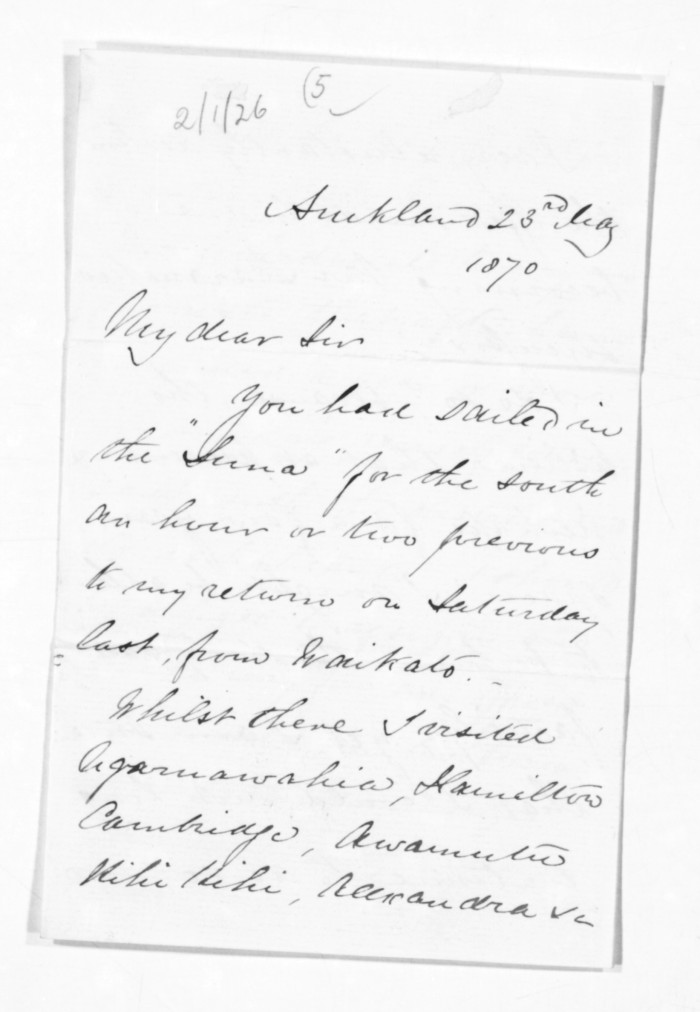 2/1/26
(5
Auckland 23rd May
1870
My dear Sir
You had sailed in
the "Luna" for the south
an hour or two previous
to my return on Saturday
last, from Waikato. _
Whilst there I visited
Ngaruawahia, Hamilton
Cambridge, Awamutu
Kihi Kihi, Alexandra &c